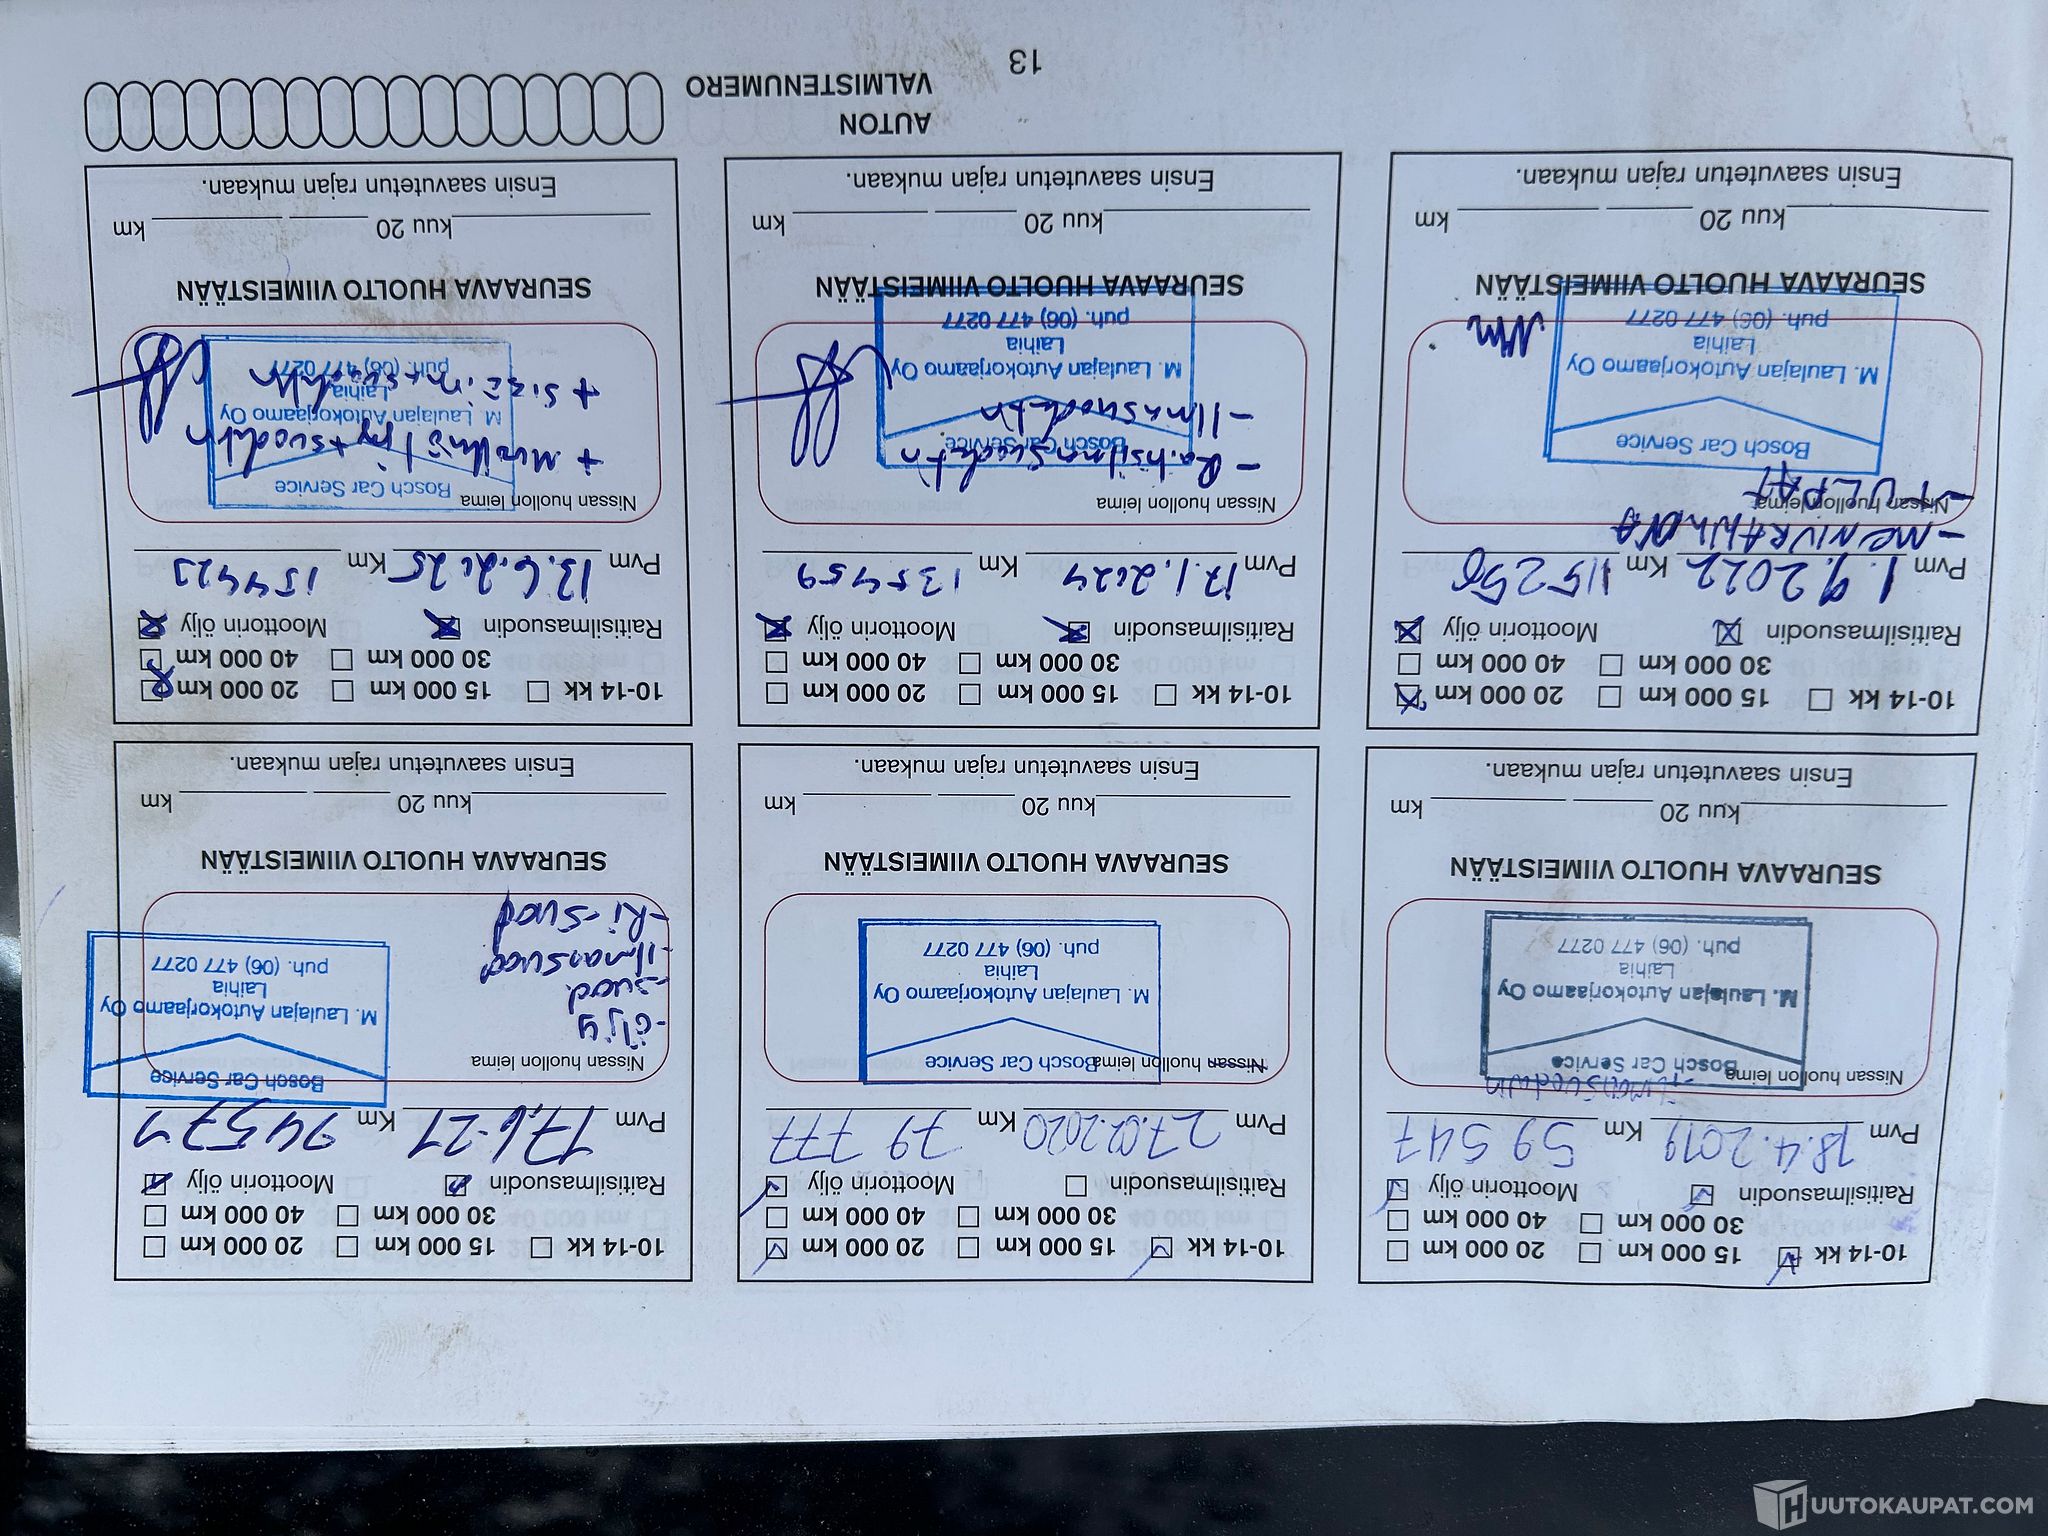 10-14 kk 15 000 km 20 000 km
30 000 km 40 000 km
Raitisilmasuodin Moottorin öljy
Pvm 18.4.2019 Km 59 547
Nissan huollon leima
Bosch Car Service
M. Laulajan Autokorjaamo Oy
Laihia
puh. (06) 477 0277
SEURAAVA HUOLTO VIIMEISTÄÄN
kuu 20 km
Ensin saavutetun rajan mukaan.
10-14 kk 15 000 km 20 000 km
30 000 km 40 000 km
Raitisilmasuodin Moottorin öljy
Pvm 27.02.2020 Km 79 777
Nissan huollon leima
Bosch Car Service
M. Laulajan Autokorjaamo Oy
Laihia
puh. (06) 477 0277
SEURAAVA HUOLTO VIIMEISTÄÄN
kuu 20 km
Ensin saavutetun rajan mukaan.
10-14 kk 15 000 km 20 000 km
30 000 km 40 000 km
Raitisilmasuodin Moottorin öljy
Pvm 17.6.21 Km 94571
Nissan huollon leima
-Öljy
-suod.
-Ilmansuod
-Ri-suod
Bosch Car Service
M. Laulajan Autokorjaamo Oy
Laihia
puh. (06) 477 0277
SEURAAVA HUOLTO VIIMEISTÄÄN
kuu 20 km
Ensin saavutetun rajan mukaan.
10-14 kk 15 000 km 20 000 km
30 000 km 40 000 km
Raitisilmasuodin Moottorin öljy
Pvm 1.9.2022 Km 115250
Nissan huollon leima
-TULPAT
Bosch Car Service
M. Laulajan Autokorjaamo Oy
Laihia
puh. (06) 477 0277
SEURAAVA HUOLTO VIIMEISTÄÄN
kuu 20 km
Ensin saavutetun rajan mukaan.
10-14 kk 15 000 km 20 000 km
30 000 km 40 000 km
Raitisilmasuodin Moottorin öljy
Pvm 17.1.2024 Km 135459
Nissan huollon leima
- Ilmasuodatin
Bosch Car Service
M. Laulajan Autokorjaamo Oy
Laihia
puh. (06) 477 0277
SEURAAVA HUOLTO VIIMEISTÄÄN
kuu 20 km
Ensin saavutetun rajan mukaan.
10-14 kk 15 000 km 20 000 km
30 000 km 40 000 km
Raitisilmasuodin Moottorin öljy
Pvm 13.6.2025 Km 154423
Nissan huollon leima
+ suodatin
Bosch Car Service
M. Laulajan Autokorjaamo Oy
Laihia
puh. (06) 477 0277
SEURAAVA HUOLTO VIIMEISTÄÄN
kuu 20 km
Ensin saavutetun rajan mukaan.
AUTON
VALMISTENUMERO
13
HUUTOKAUPAT.COM